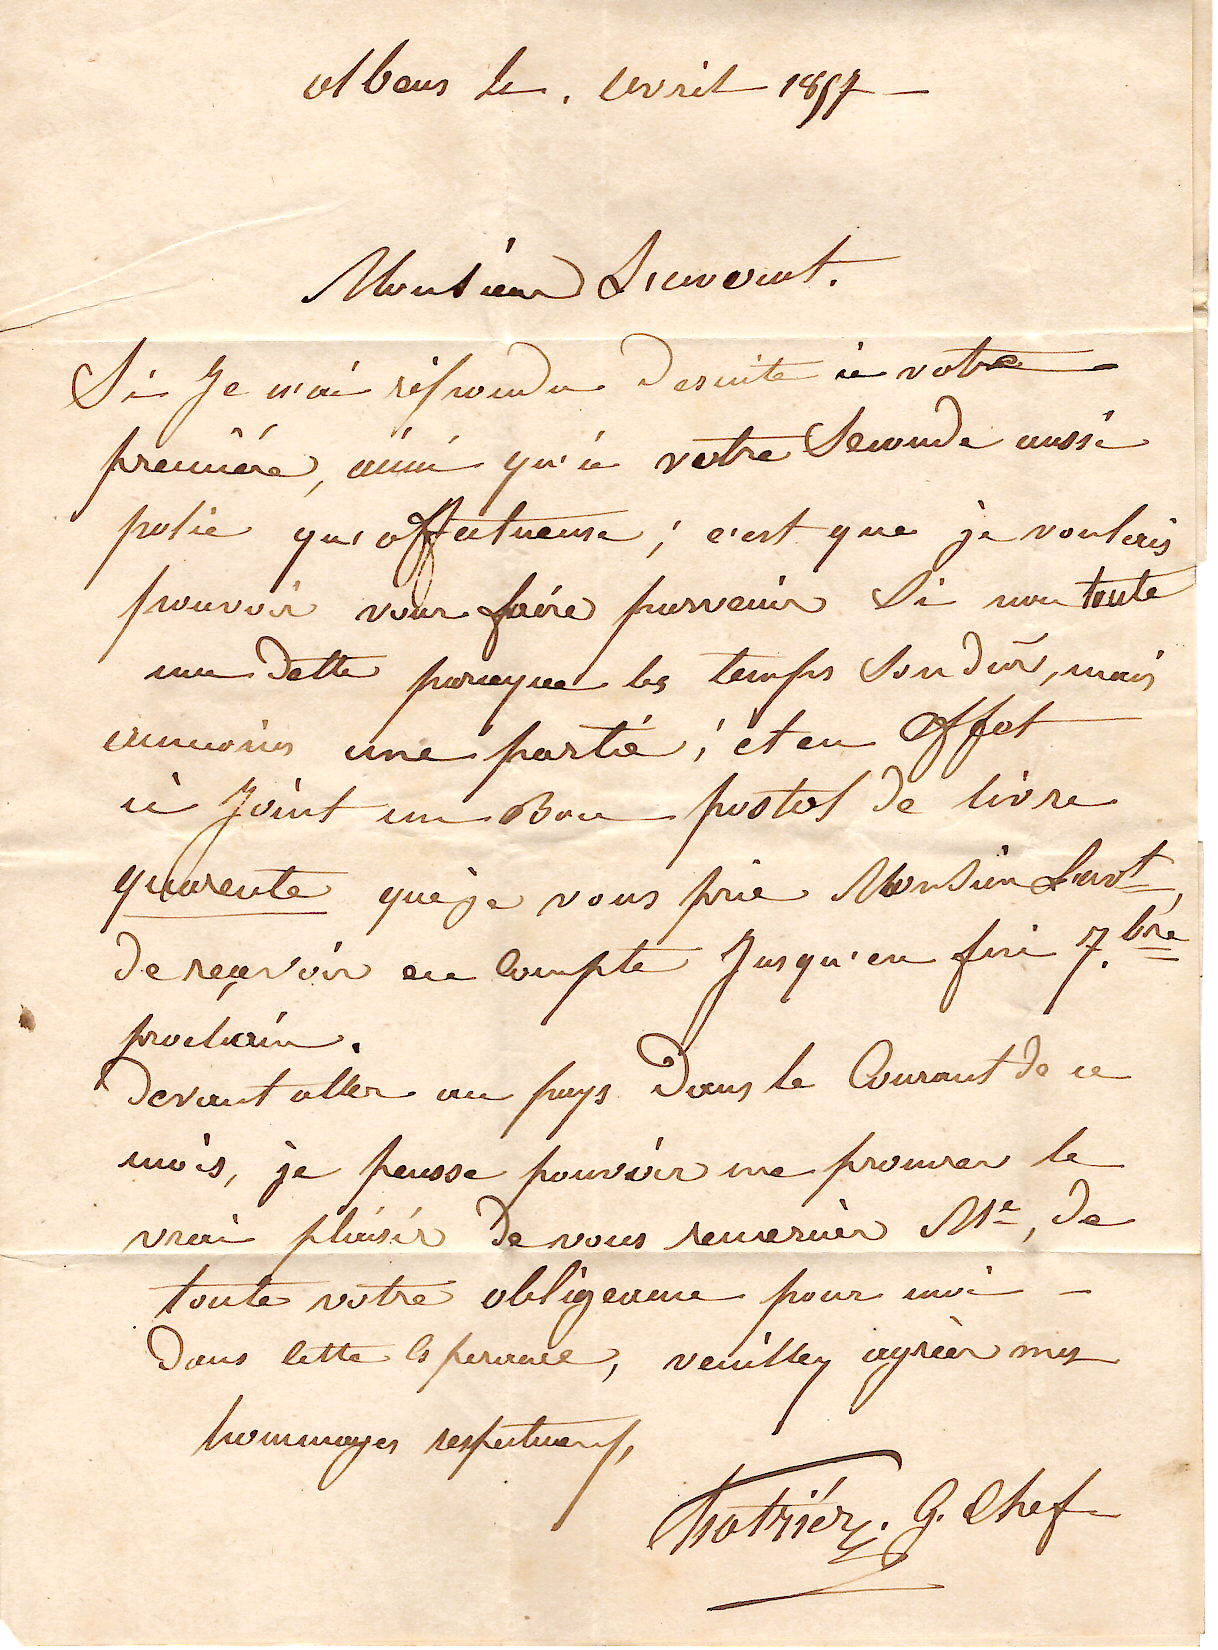 Albens le . Avril 1857 —
Monsieur
Si Je n'ai répondu desuite à votre
première, ainsi qu'à votre Seconde aussi
polie qu'affectueuse; c'est que je voulais
pouvoir vous faire parvenir Si non toute
ma dette parceque les temps Son dûr, mais
aumoins une partie; et en effet
ci Joint un Bon postal de livre
quarente que je vous prie Monsieur
de reçevoir en Compte Jusqu'en fin 7.bre
prochain.
devant aller au pays Dans le Courant de ce
mois, je pensse pouvoir me procurer le
vrai plaisir de vous remercier Mr, de
toute votre obligeance pour moi —
Dans cette Esperance, veuillez agréer mes
hommages respectueux,
G. Chef